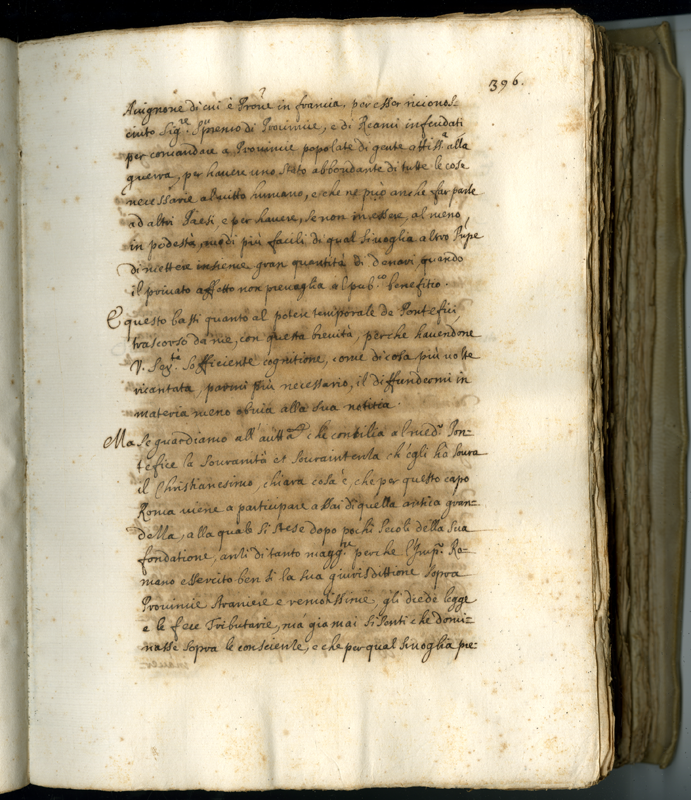 396.
Avignone di cui è Prove in francia, per esser ricionos-
ciuto Sig.re Supremo di Provincie, e di Reami infeudati
per comandare a Provincie popolate di gente attiss.a alla
guerra, per havere uno stato abbondante di tutte le cose
necessarie al vitto humano, e che ne può anche far parte
ad altri Paesi e per havere, se non in essere, al meno
in podestà, modi più facili di qual si uoglia altro Prñpe
di mettere insieme gran quantità di denari, quando
il privato affetto non preuaglia al pub.co benefitio.
E questo basti quanto al poter temporale de Pontefici,
trascorso da me, con questa breuità, perche hauendone
V. Ser.tà sofficiente cognitione, come di cosa più uolte
ricantata, parmi più necessario, il diffundermi in
materia meno obuia alla sua notitia.
Ma se guardiamo all'autt.à che concilia al med.o Pon-
tefice la Souranità et Souraintenza ch'egli ha soura
il Christianesimo, chiara cosa è, che per questo capo
Roma uiene a participare assai di quella antica gran-
dezza, alla quale si stese dopo pochi secoli della sua
fondatione, anzi di tanto magg.re perche l'Imp.o Ro-
mano essercitò ben sì la sua giurisdittione sopra
Prouincie straniere e remotissime, gli diede legge
e le fece Tributarie, ma già mai si sentì che domi-
nasse sopra le conscienze, e che per qual siuoglia pre-